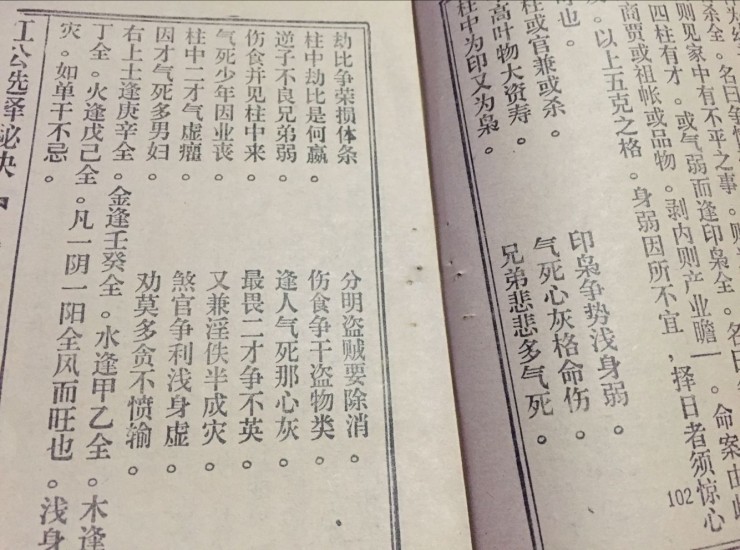 杀全。名曰争
则见家中有不平之事。则
四柱有才。或气弱而逢印枭全。名曰
商贾或祖帐或品物。剥内则产业瞻一。命案由此
。以上五克之格。身弱因所不宜，择日者须惊心
也。
柱或官兼或杀。 印枭争势浅身弱。
高叶物大资寿。 气死心灰格命伤。
柱中为印又为枭。 兄弟悲悲多气死。
102
劫比争荣损体条 分明盗贼要除消。
柱中劫比是何赢。 伤食争干盗物类。
逆子不良兄弟弱。 逢人气死那心灰。
伤食并见柱中来。 最畏二才争不英。
气死少年因业丧。 又兼淫佚半成灾。
柱中二才气虚癯。 煞官争利浅身虚。
因才气死多男妇。 劝莫多贪不愤输。
右上土逢庚辛全。金逢壬癸全。水逢甲乙全。木逢
丁全。火逢戊己全。凡一阴一阳全风而旺也。浅身
灾。如单干不忌。
江公选择秘诀